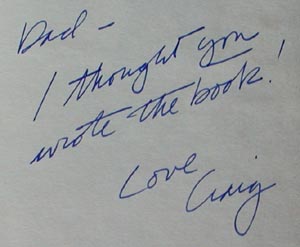 Dad –
I thought you
wrote the book!
Love
Craig